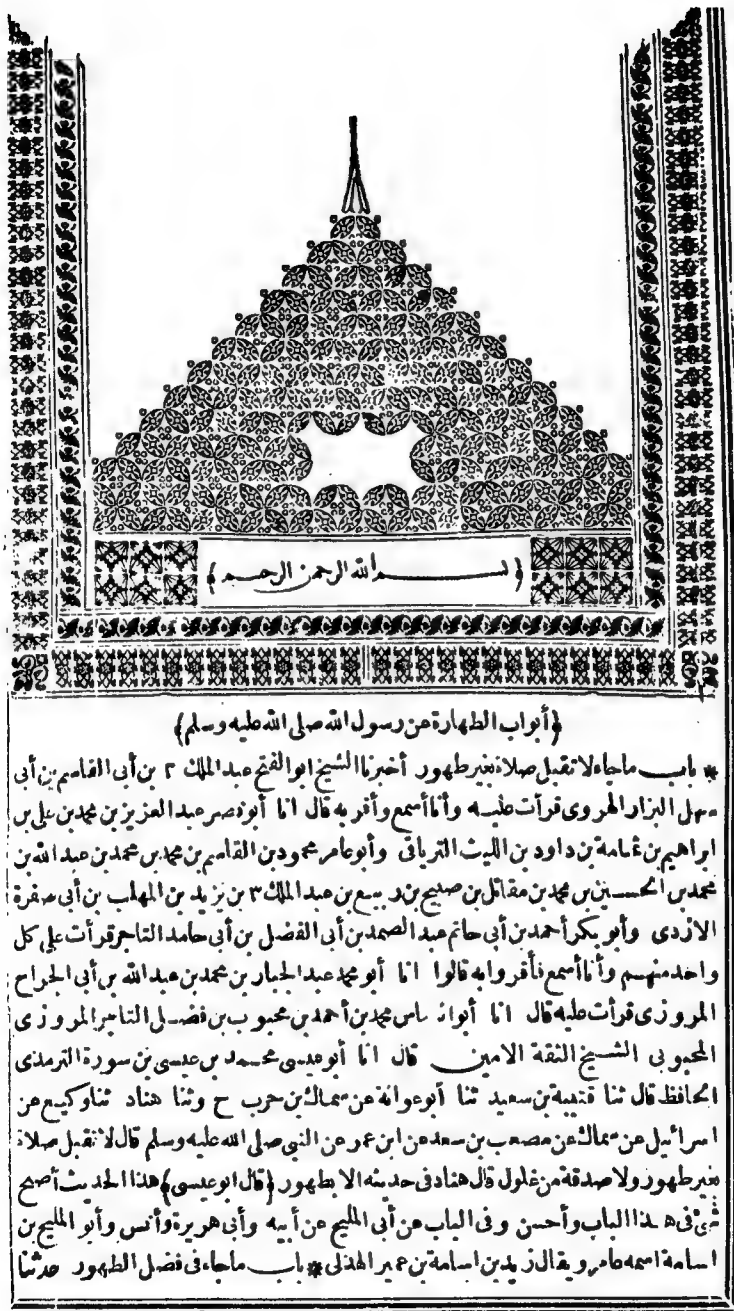 ﴿بسم الله الرحمن الرحيم﴾
﴿أبواب الطهارة عن رسول الله صلى الله عليه وسلم﴾
* باب ماجاء لا تقبل صلاة بغير طهور أخبرنا الشيخ ابو الفتح عبد الملك ٢ بن أبى القاسم بن أبى
سهل البزار الهروى قرأت عليه وأنا أسمع وأقر به قال انا أبو نصر عبد العزيز بن محمد بن على بن
ابراهيم بن ثمامة بن داود بن الليث الترياقى وأبو عامر محمود بن القاسم بن محمد بن محمد بن عبد الله بن
محمد بن الحسين بن محمد بن مقاتل بن صبيح بن ربيع بن عبد الملك ٣ بن يزيد بن المهلب بن أبى صفرة
الازدى وأبو بكر أحمد بن أبى حاتم عبد الصمد بن أبى الفضل بن أبى حامد التاجر قرأت على كل
واحد منهم وأنا أسمع فأقروا به قالوا انا أبو محمد عبد الجبار بن محمد بن عبد الله بن أبى الجراح
المروزى قرأت عليه قال انا أبو العباس محمد بن أحمد بن محبوب بن فضيل التاجر المروزى
المحبوبى الشيخ الثقة الامين قال انا أبو عيسى محمد بن عيسى بن سورة الترمذى
الحافظ قال ثنا قتيبة بن سعيد ثنا أبو عوانة عن سماك بن حرب ح وثنا هناد ثنا وكيع عن
اسرائيل عن سماك عن مصعب بن سعد عن ابن عمر عن النبى صلى الله عليه وسلم قال لا تقبل صلاة
بغير طهور ولا صدقة من غلول قال هناد فى حديثه الا بطهور ﴿قال ابو عيسى﴾ هذا الحديث أصح
شئ فى هذا الباب وأحسن وفى الباب عن أبى المليح عن أبيه وأبى هريرة وأنس وأبو المليح بن
اسامة اسمه عامر ويقال زيد بن اسامة بن عمير الهذلى * باب ماجاء فى فضل الطهور حدثنا